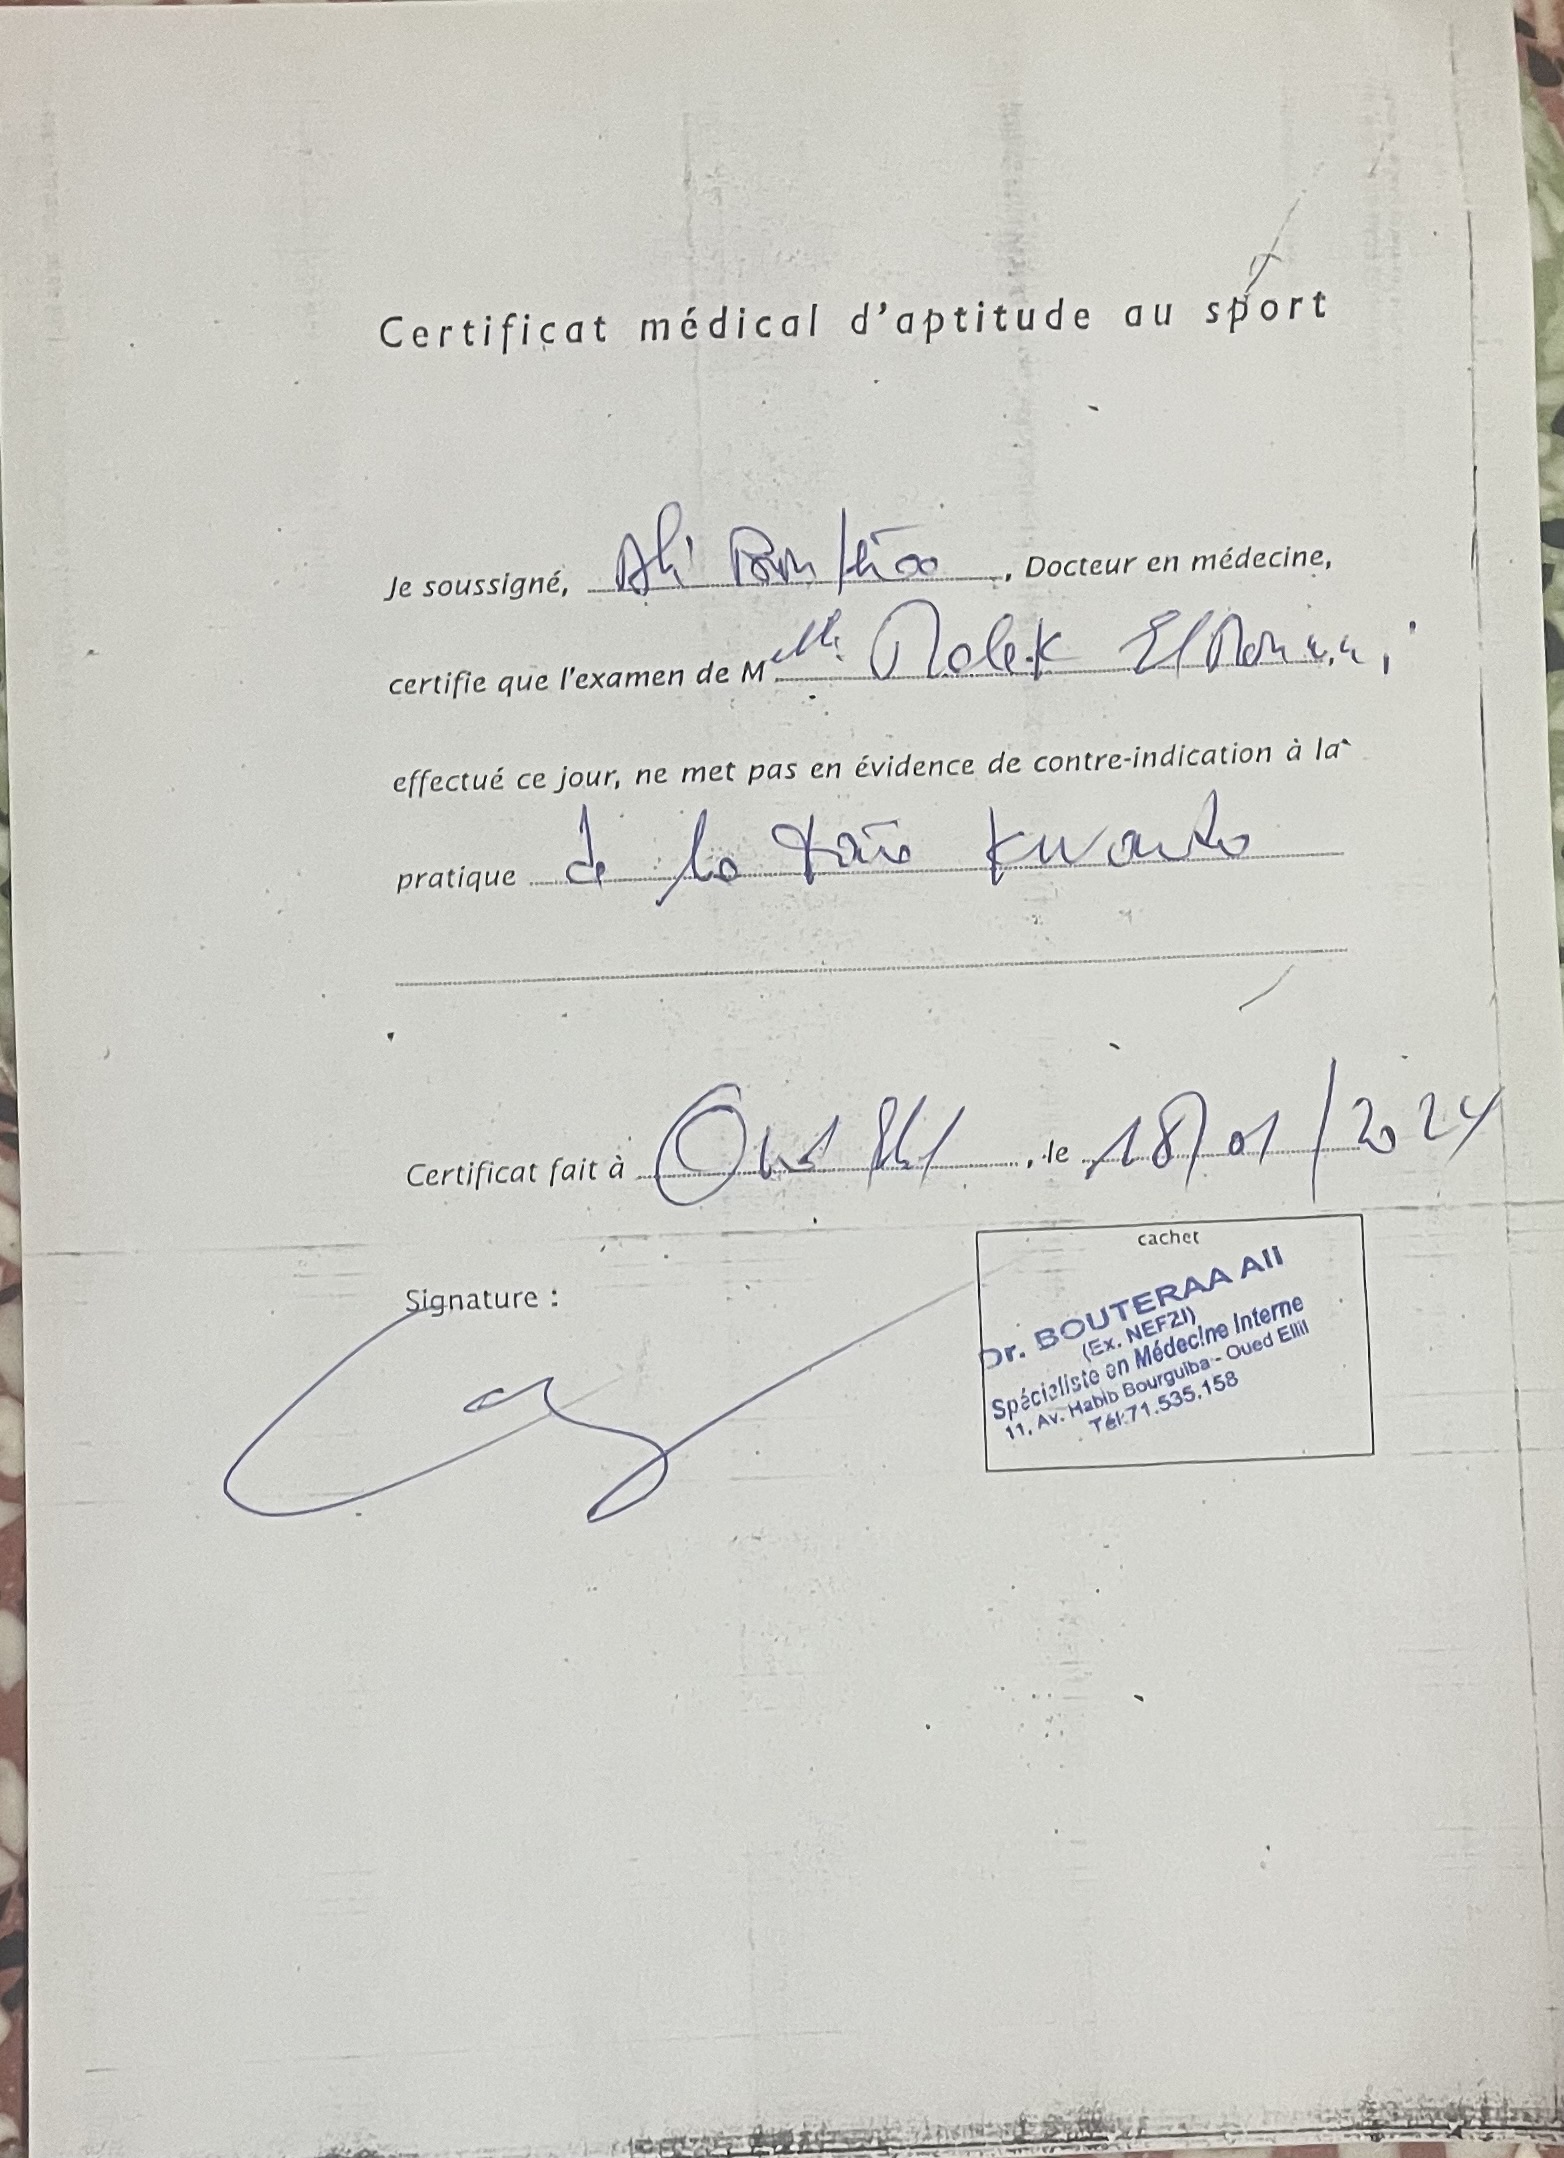 Certificat médical d'aptitude au sport
Je soussigné, Ali Bouteraa, Docteur en médecine,
certifie que l'examen de Melle Malek El
effectué ce jour, ne met pas en évidence de contre-indication à la
pratique de la taîe kwando
Certificat fait à Oued Ellil, le 18/01/2024
Signature :
cachet
Dr. BOUTERAA Ali
(Ex. NEFZI)
Spécialiste en Médecine Interne
11, Av. Habib Bourguiba - Oued Ellil
Tél:71.535.158